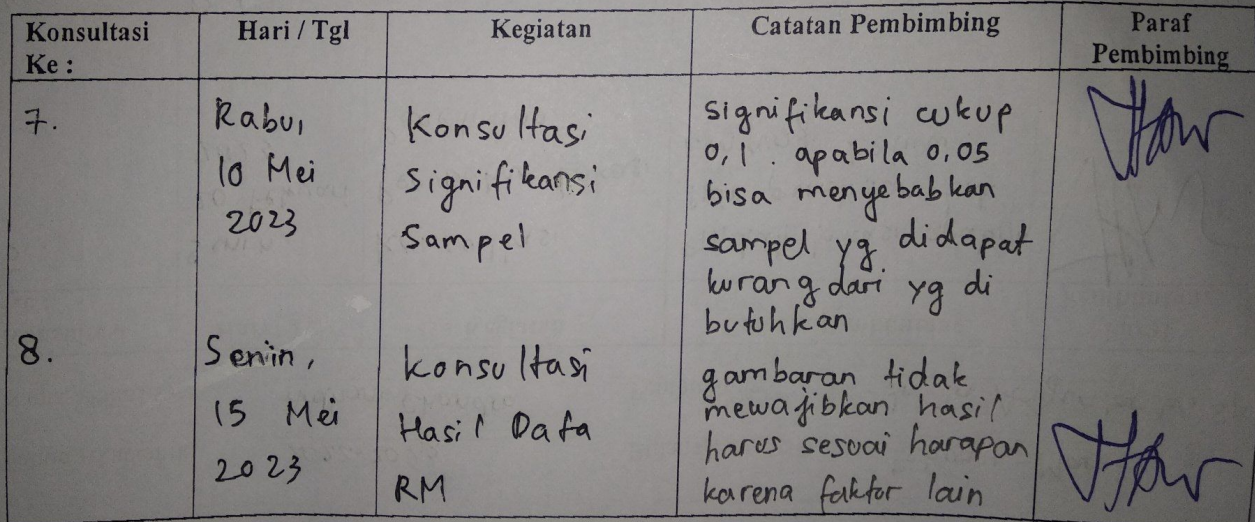 Konsultasi Ke : Hari / Tgl Kegiatan Catatan Pembimbing Paraf Pembimbing
7.
Rabu,
10 Mei
2023
Konsultasi
Signifikansi
Sampel
signifikansi cukup
0,1 . apabila 0,05
bisa menyebabkan
sampel yg didapat
kurang dari yg di
butuhkan
8.
Senin,
15 Mei
2023
Konsultasi
Hasil Data
RM
gambaran tidak
mewajibkan hasil
harus sesuai harapan
karena faktor lain